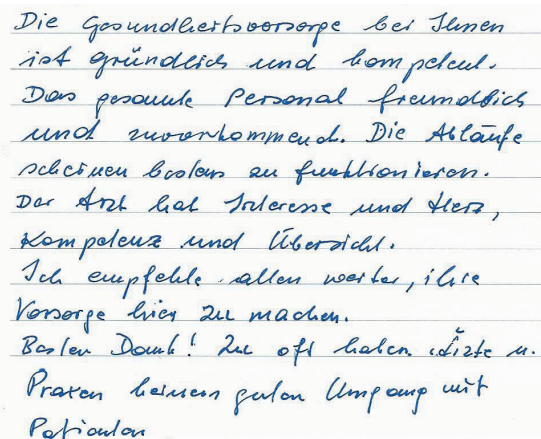 Die Gesundheitsvorsorge bei Ihnen
ist gründlich und kompetent.
Das gesamte Personal freundlich
und zuvorkommend. Die Abläufe
scheinen bestens zu funktionieren.
Der Arzt hat Interesse und Herz,
Kompetenz und Übersicht.
Ich empfehle allen weiter, ihre
Vorsorge hier zu machen.
Besten Dank! Zu oft haben Ärzte u.
Praxen keinen guten Umgang mit
Patienten